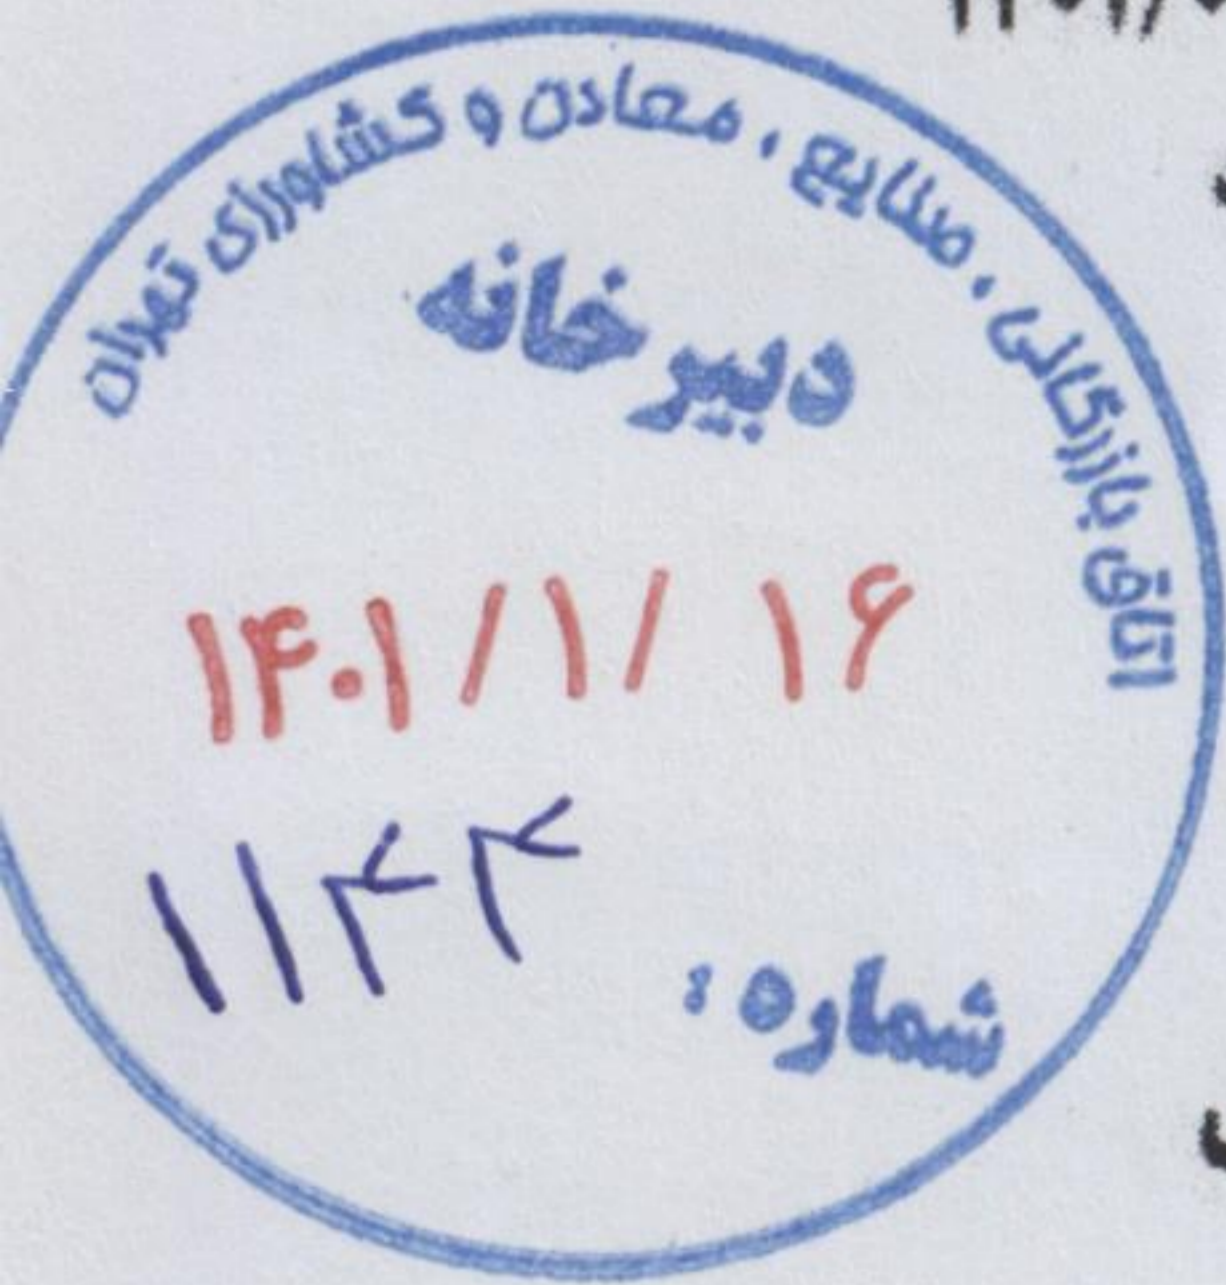 اتاق بازرگانی، صنایع، معادن و کشاورزی تهران
دبیرخانه
۱۴۰۱/۱/۱۶
۱۱۴۴
شماره: